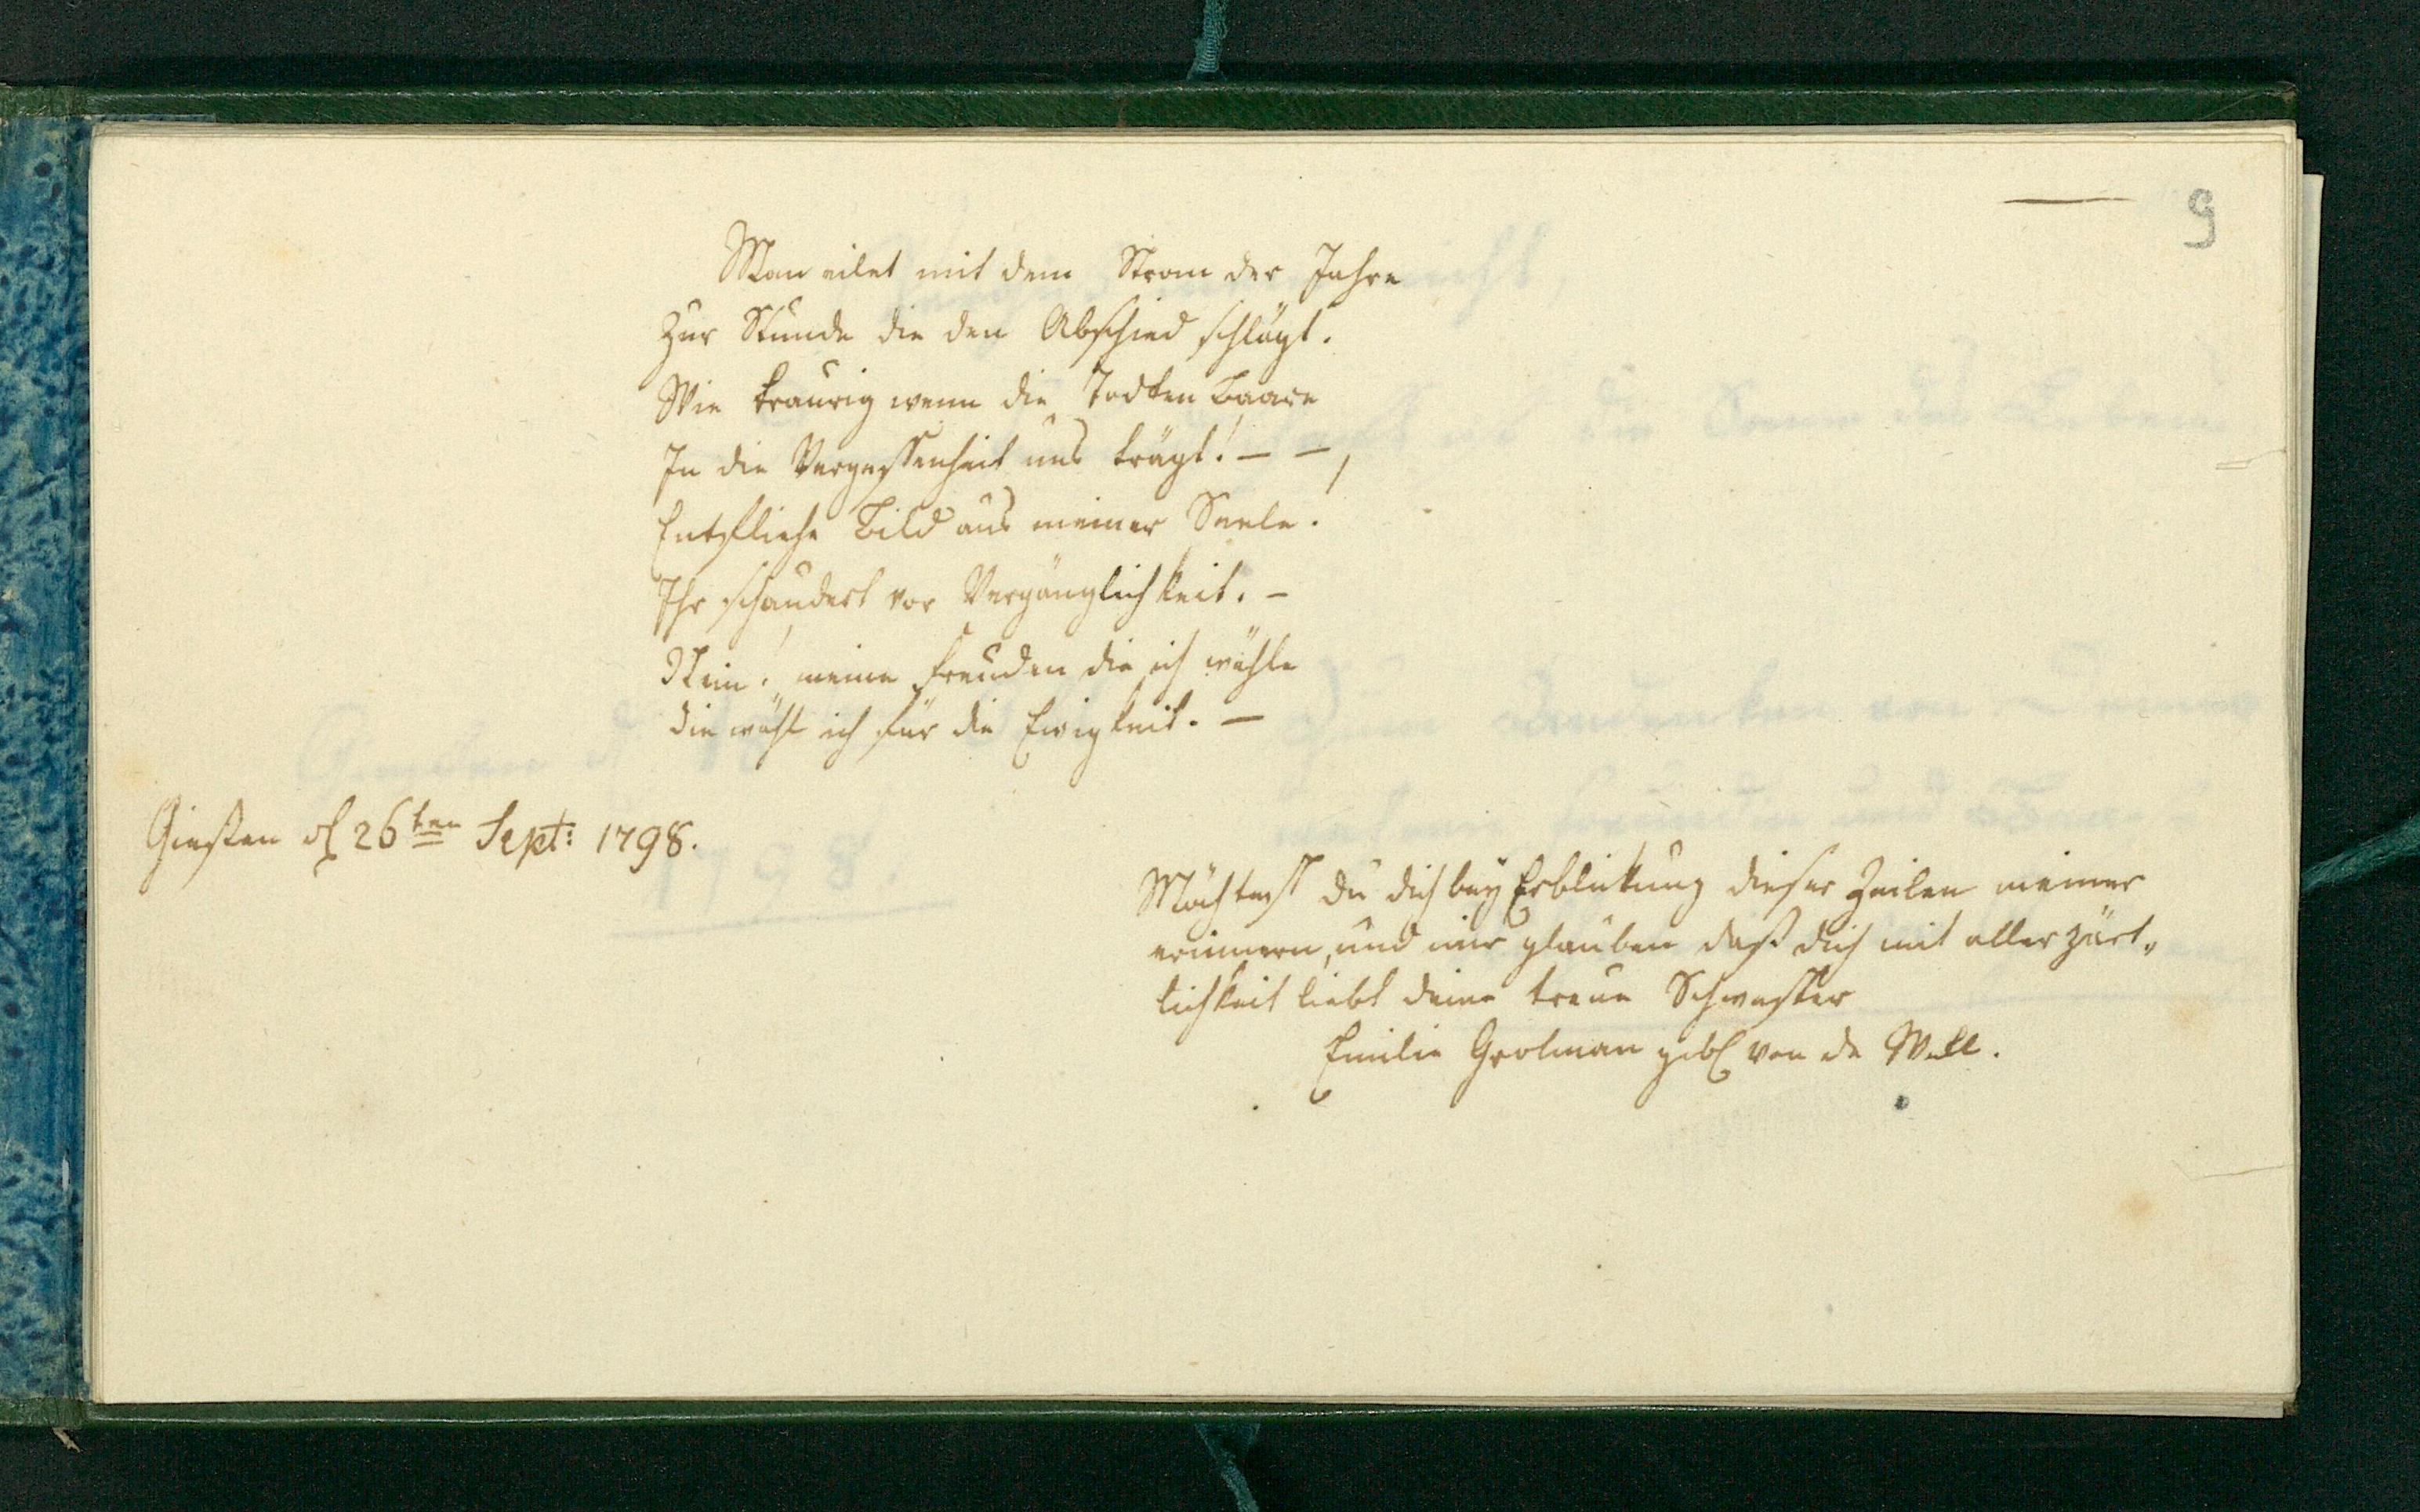 9
Man eilet mit dem Strom der Jahre
Zur Stunde die den Abschied schlägt.
Wie traurig wenn die Todten Baare
In die Vergessenheit uns trägt! – –,
Entfliehe Bild aus meiner Seele.
Ihr schaudert vor Vergänglichkeit. –
Nein! meine Freuden die ich wähle
die wähl ich für die Ewigkeit. –
Giesten d 26ten Sept: 1798.
Möchtest du dich bey Erblickung dieser Zeilen meiner
erinnern, und mir glauben daß dich mit aller zärt„
lichkeit liebt deine treue Schwester
Emilie Grolman geb von de Wall.